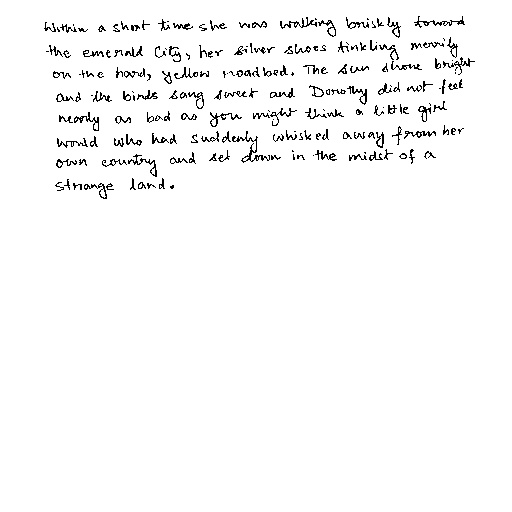 Within a short time she was walking briskly toward
the emerald City, her silver shoes tinkling merrily
on the hard, yellow roadbed. The sun shone bright
and the birds sang sweet and Dorothy did not feel
nearly as bad as you might think a little girl
would who had suddenly whisked away from her
own country and set down in the midst of a
strange land.